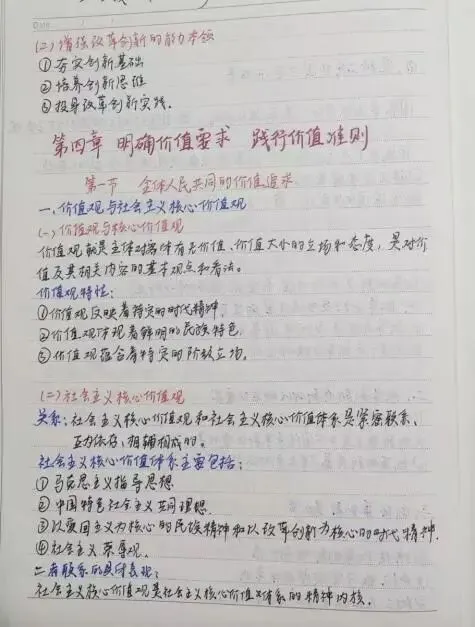 (二)增强改革创新的能力本领
①夯实创新基础
②培养创新思维
③投身改革创新实践。
第四章 明确价值要求 践行价值准则
第一节 全体人民共同的价值追求
一、价值观与社会主义核心价值观
(一)价值观与核心价值观
价值观就是主体对客体有无价值、价值大小的立场和态度,是对价
值及其相关内容的基本观点和看法。
价值观特性:
①价值观反映着特定的时代精神。
②价值观体现着鲜明的民族特色。
③价值观蕴含着特定的阶级立场。
(二)社会主义核心价值观
关系:社会主义核心价值观和社会主义核心价值体系是紧密联系、
互为依存、相辅相成的。
社会主义核心价值体系主要包括:
①马克思主义指导思想
②中国特色社会主义共同理想.
③以爱国主义为核心的民族精神和以改革创新为核心的时代精神.
④社会主义荣辱观.
二者联系的具体表现:
社会主义核心价值观是社会主义核心价值体系的精神内核.